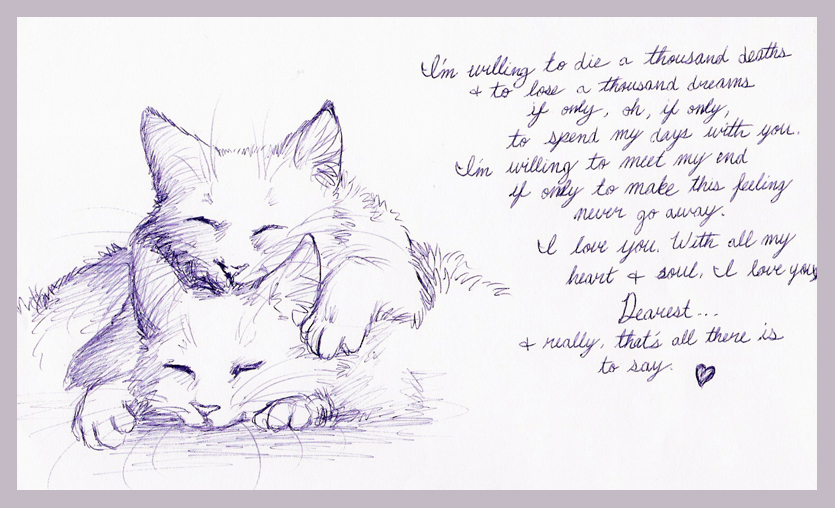 I'm willing to die a thousand deaths
& to lose a thousand dreams
if only, oh, if only,
to spend my days with you.
I'm willing to meet my end
if only to make this feeling
never go away.
I love you. With all my
heart & soul, I love you,
Dearest...
& really, that's all there is
to say.